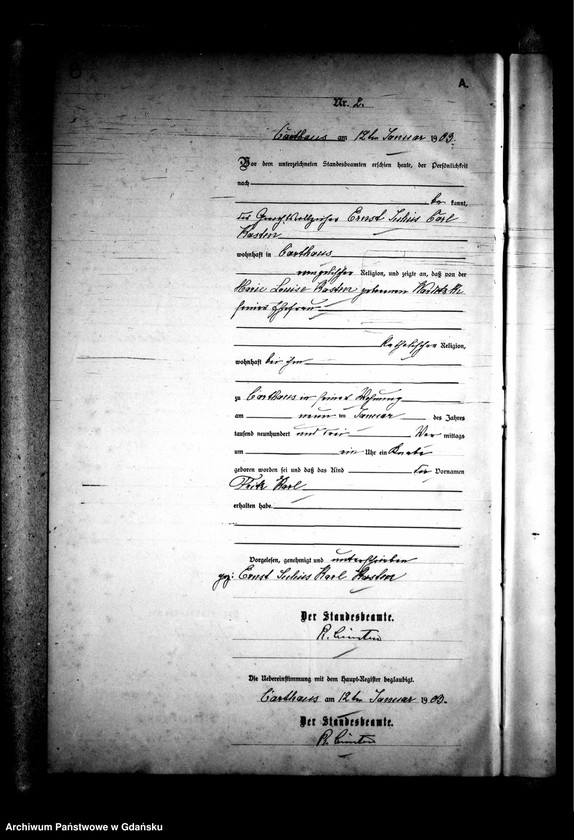 A.
Nr. 2.
Carthaus am 12ten Januar 1903.
Vor dem unterzeichneten Standesbeamten erschien heute, der Persönlichkeit
nach
be kannt,
der Ernst Julius Carl
Kasten
wohnhaft in Carthaus
evangelischer Religion, und zeigte an, daß von der
Marie Louise Kasten geborenen
seiner Ehefrau
katholischer Religion,
wohnhaft bei ihm
zu Carthaus in seiner Wohnung
am neun ten Januar des Jahres
tausend neunhundert und drei Vor mittags
um ein Uhr ein Knabe
geboren worden sei und daß das Kind die Vornamen
Fritz Karl
erhalten habe.
Vorgelesen, genehmigt und unterschrieben
gez: Ernst Julius Karl Kasten
Der Standesbeamte.
Die Uebereinstimmung mit dem Haupt-Register beglaubigt.
Carthaus am 12ten Januar 1903.
Der Standesbeamte.
Archiwum Państwowe w Gdańsku